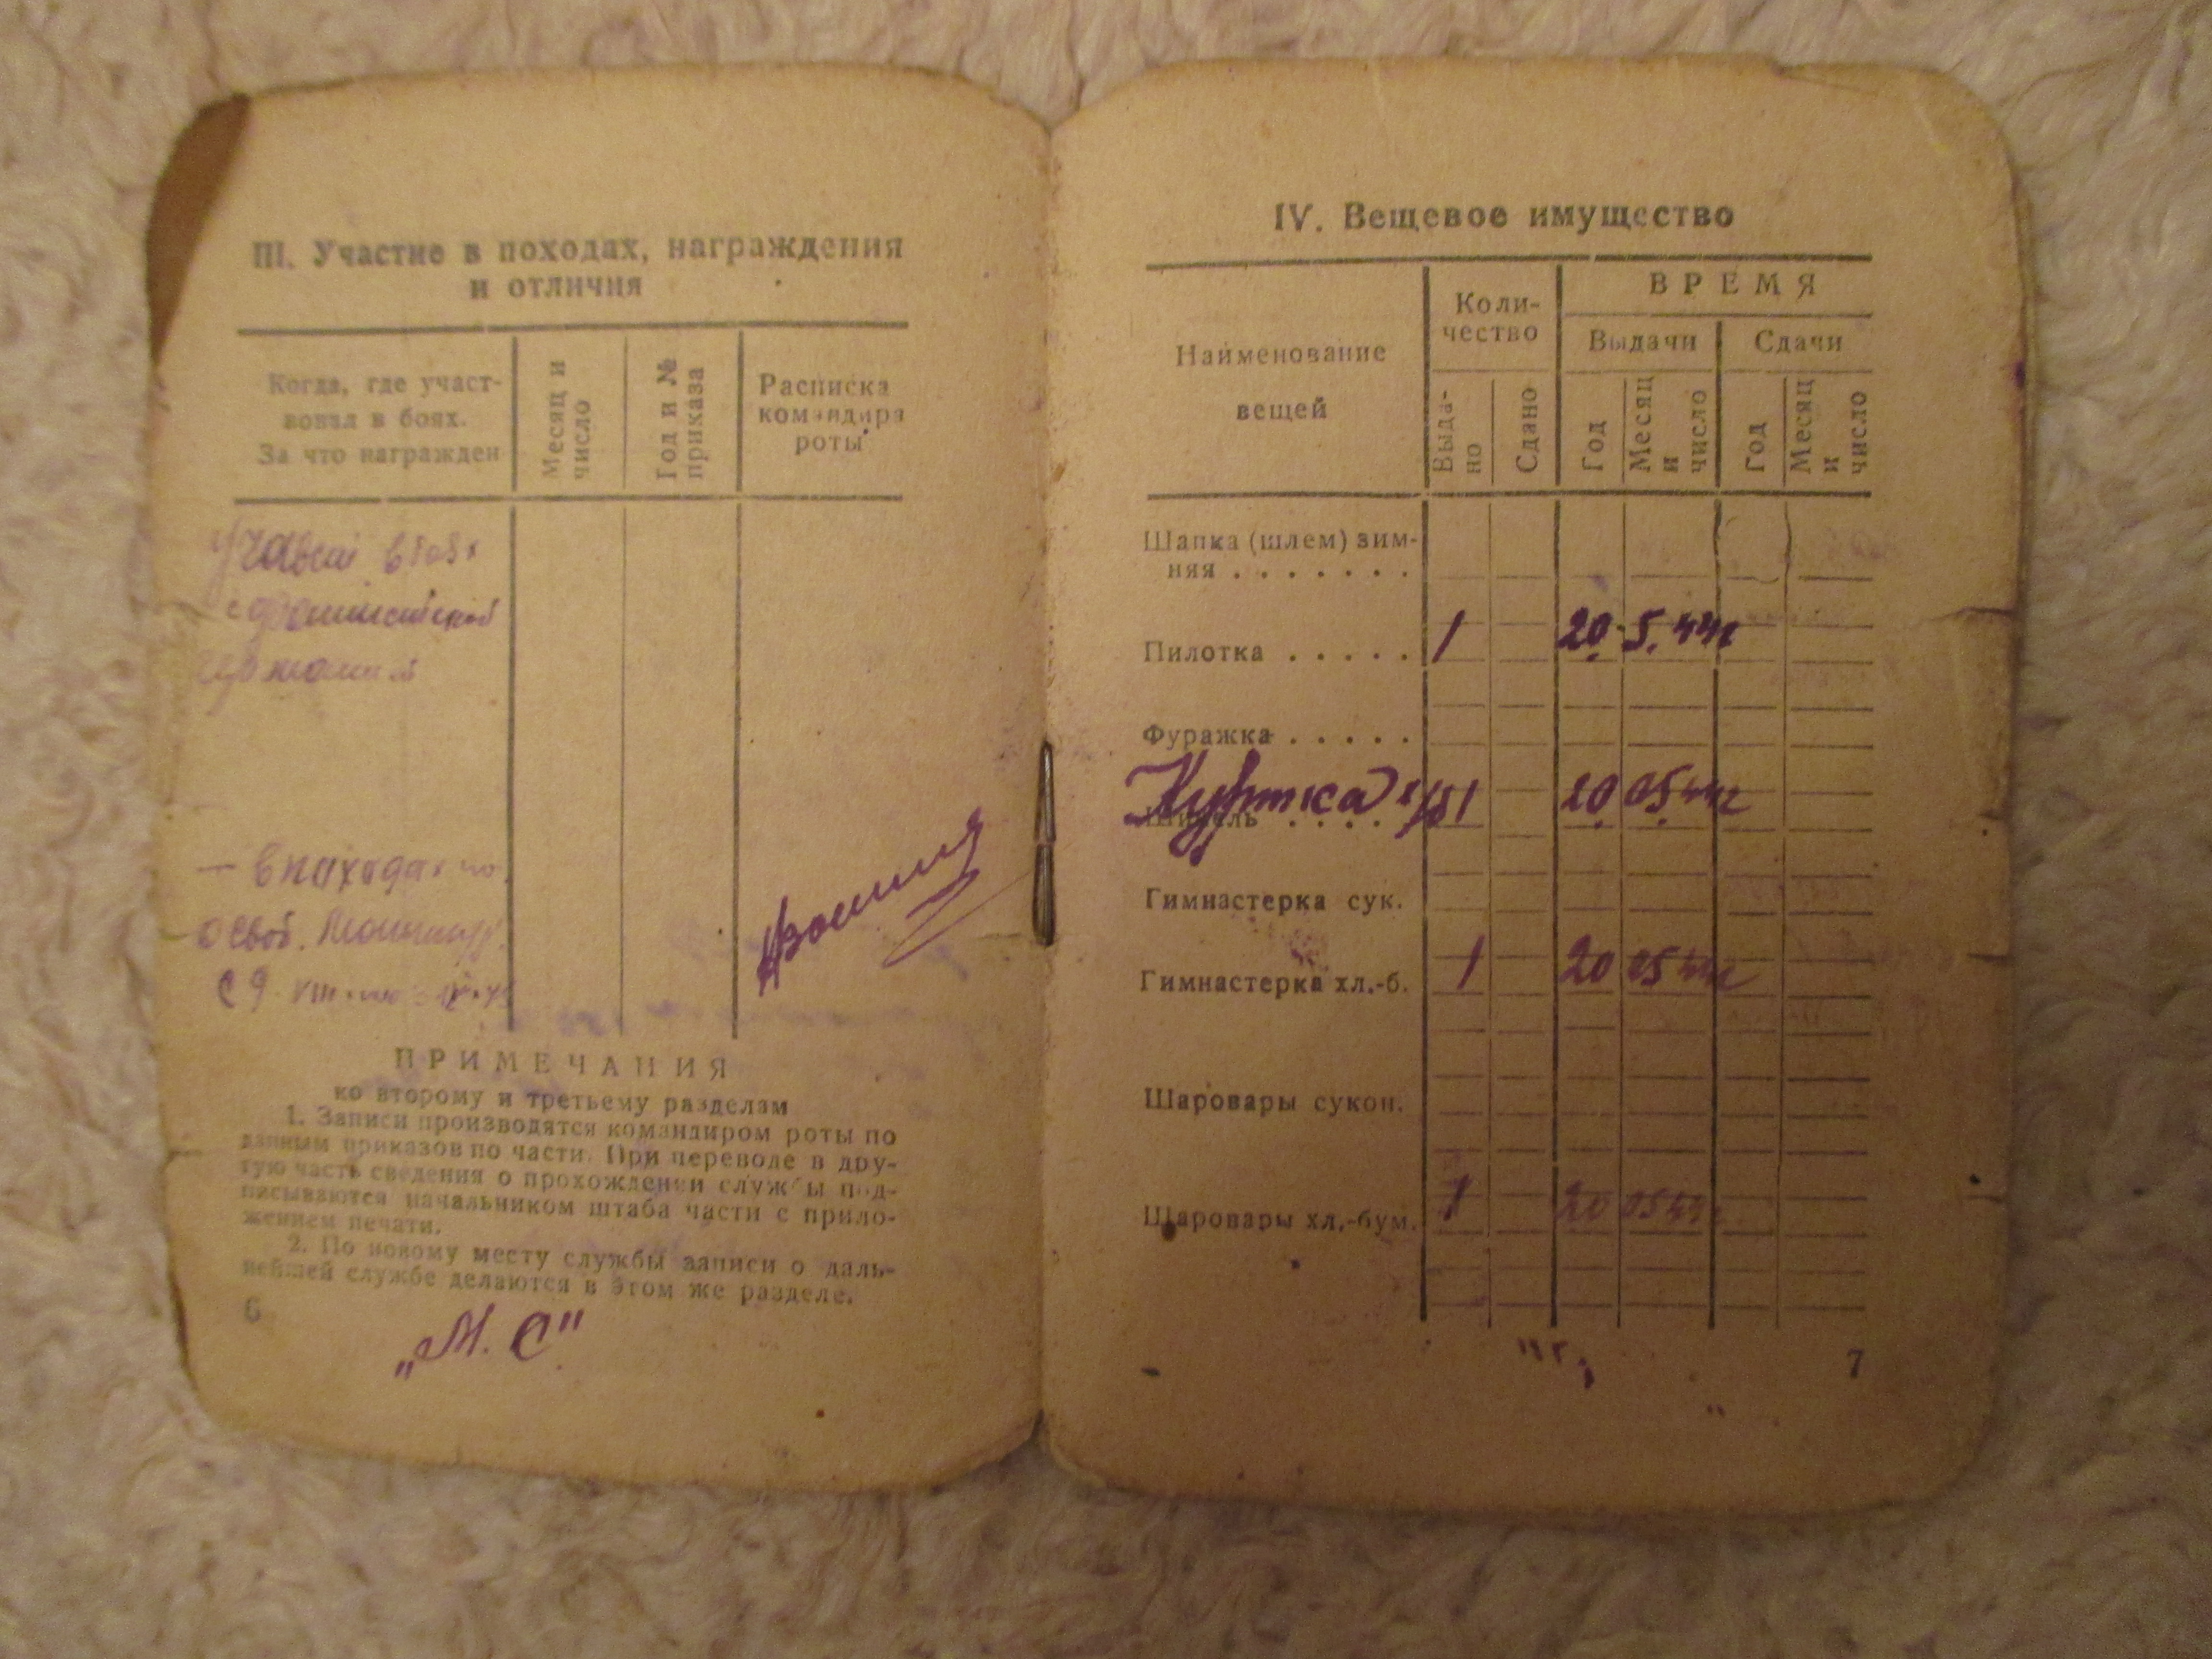 III. Участие в походах, награждения
и отличия
Когда, где участ-
вовал в боях.
За что награжден
Месяц и
число
Год и №
приказа
Расписка
командира
роты
в боях
с фашистской
германией
— в походах по
освоб. Манчжур.
с 9
ПРИМЕЧАНИЯ
ко второму и третьему разделам
1. Записи производятся командиром роты по
данным приказов по части. При переводе в дру-
гую часть сведения о прохождении службы под-
писываются начальником штаба части с прило-
жением печати.
2. По новому месту службы записи о даль-
нейшей службе делаются в этом же разделе.
6
„М. С"
IV. Вещевое имущество
Наименование
вещей
Коли-
чество
ВРЕМЯ
Выдачи
Сдачи
Выда-
но
Сдано
Год
Месяц
и
число
Год
Месяц
и
число
Шапка (шлем) зим-
няя . . . . . . .
Пилотка . . . . . 1 20. 5. 44г
Фуражка . . . . .
Куртка 1 20. 05. 44г
Шинель . . . .
Гимнастерка сук.
Гимнастерка хл.-б. 1 20 05 44г
Шаровары сукон.
Шаровары хл.-бум. 1 20 05 44г
7